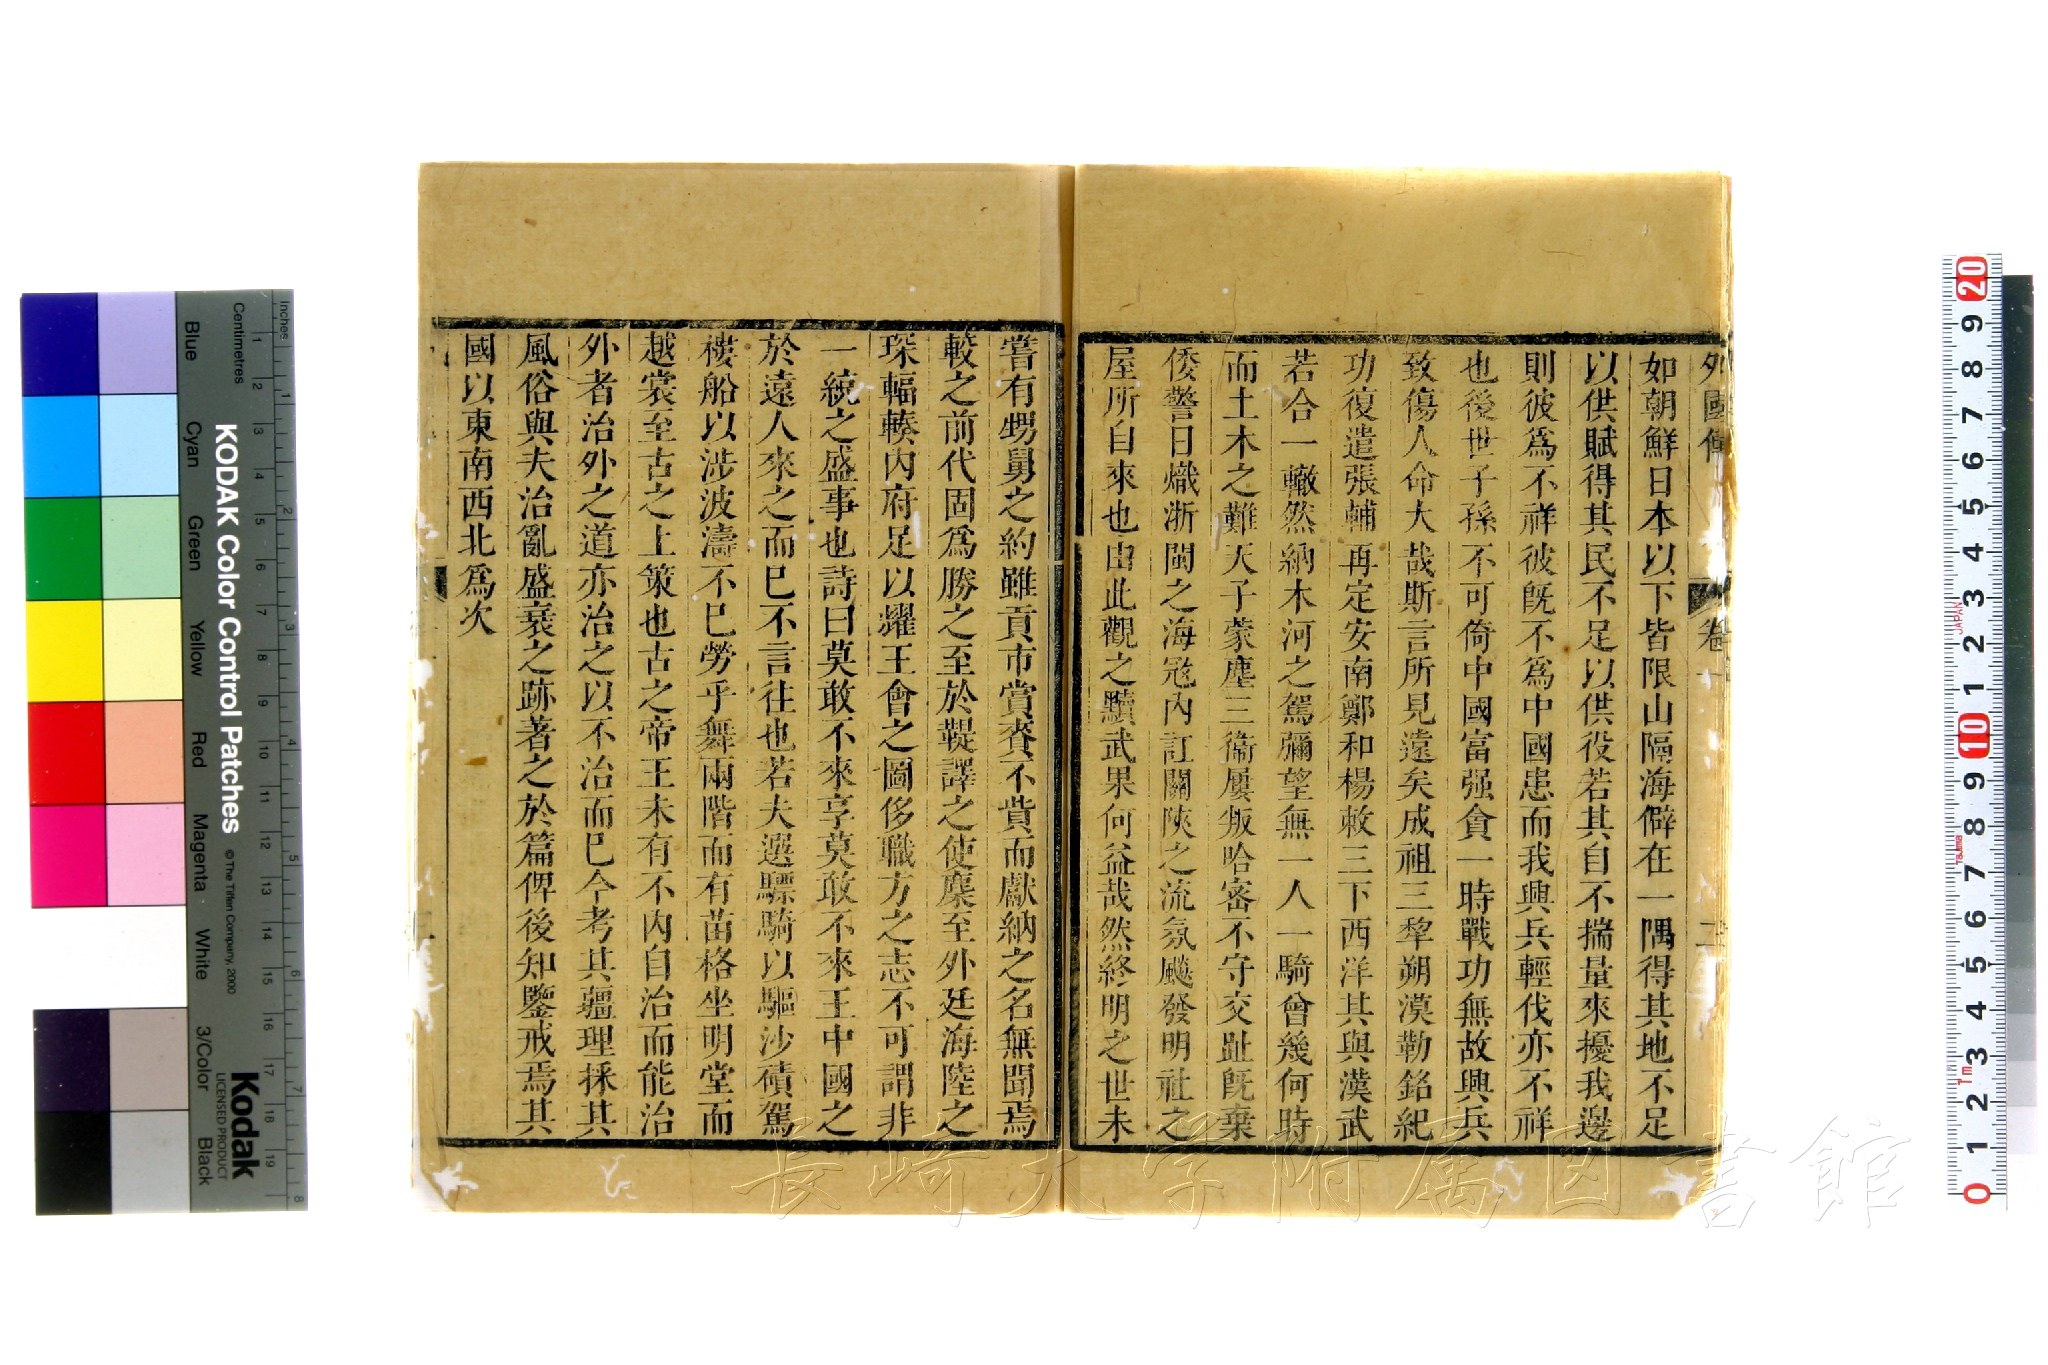 外國傳
卷一
二
如朝鮮日本以下皆限山隔海僻在一隅得其地不足
以供賦得其民不足以供役若其自不揣量來擾我邊
則彼爲不祥彼旣不爲中國患而我興兵輕伐亦不祥
也後世子孫不可倚中國富强貪一時戰功無故興兵
致傷人命大哉斯言所見遠矣成祖三犂朔漠勒銘紀
功復遣張輔再定安南鄭和楊敕三下西洋其與漢武
若合一轍然納木河之駕彌望無一人一騎曾幾何時
而土木之難天子蒙塵三衞屢叛哈密不守交趾旣棄
倭警日熾浙閩之海冦內訌關陜之流氛飈發明社之
屋所自來也由此觀之黷武果何益哉然終明之世未
嘗有甥舅之約雖貢市賞賚不貲而獻納之名無聞焉
較之前代固爲勝之至於鞮譯之使麇至外廷海陸之
琛輻輳內府足以耀王會之圖侈職方之志不可謂非
一統之盛事也詩曰莫敢不來享莫敢不來王中國之
於遠人來之而已不言往也若夫選驃騎以驅沙磧駕
樓船以涉波濤不已勞乎舞兩階而有苗格坐明堂而
越裳至古之上策也古之帝王未有不內自治而能治
外者治外之道亦治之以不治而已今考其疆理採其
風俗與夫治亂盛衰之跡著之於篇俾後知鑒戒焉其
國以東南西北爲次
長崎大学附属図書館
KODAK Color Control Patches
© The Tiffen Company, 2000
Kodak
LICENSED PRODUCT
Inches
Centimetres
Blue
Cyan
Green
Yellow
Red
Magenta
White
3/Color
Black
JAPAN
Tajima
1m